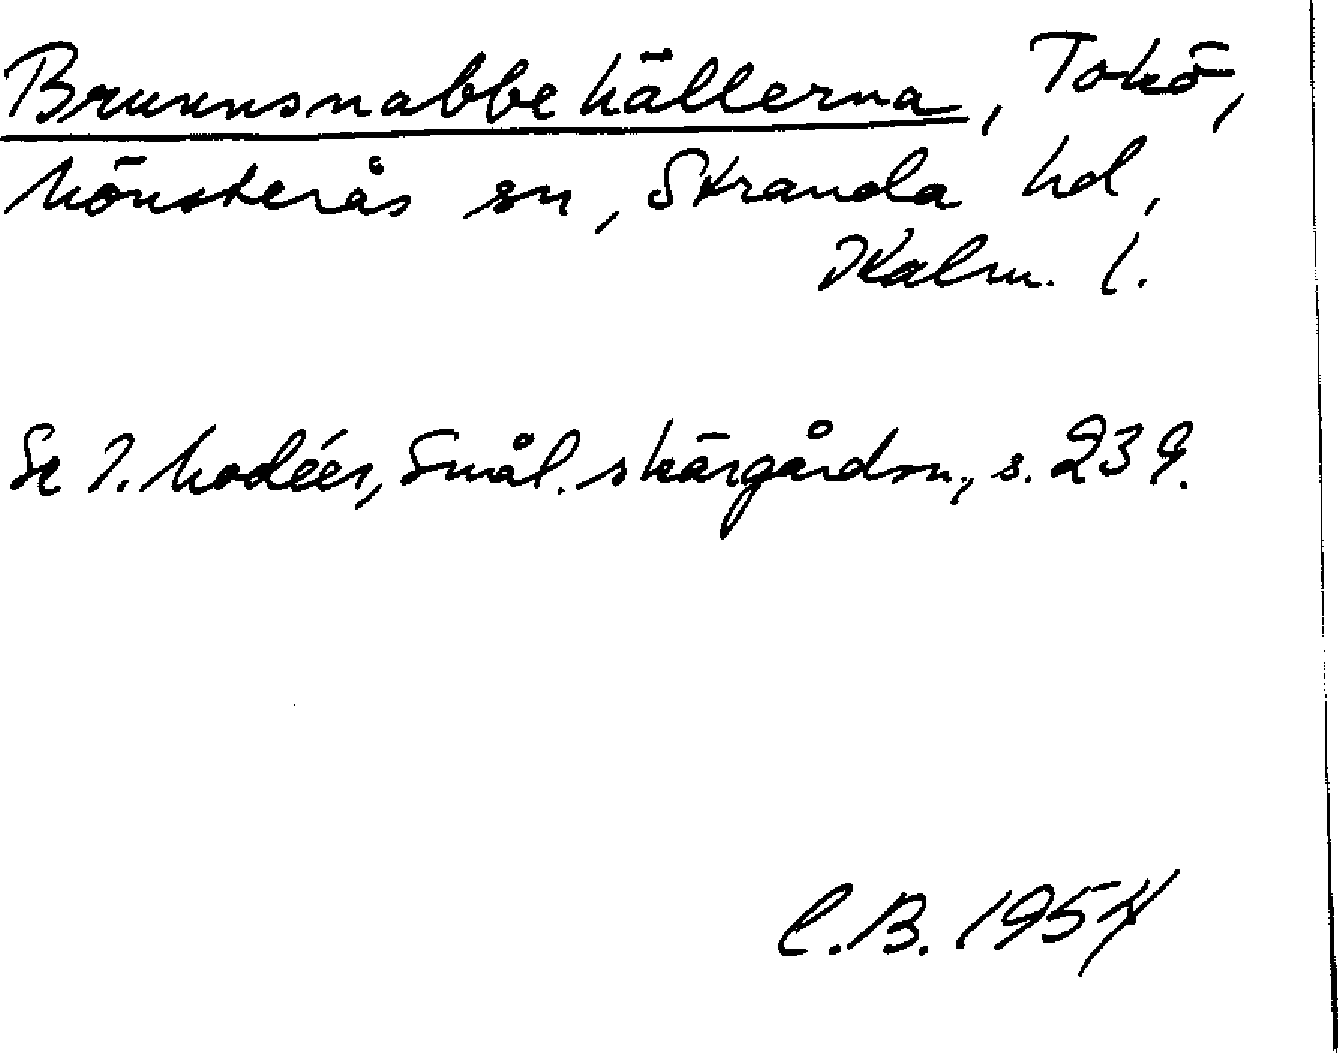 Brunnsnabbe hällerna, Tokö,
Mönsterås sn, Stranda hd,
Kalm. l.
Se I. Modéer, Smål. skärgårdsn., s. 239.
C.B. 1954